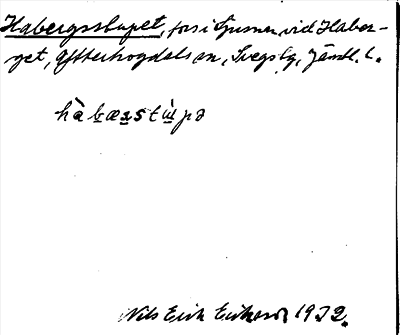 Habergsstupet, fors i Ljusnan vid Haber-
get, Ytterhogdals sn, Svegs tg, Jämtl. l.
hàbærstùpə
Nils Erik Eriksson 1932.